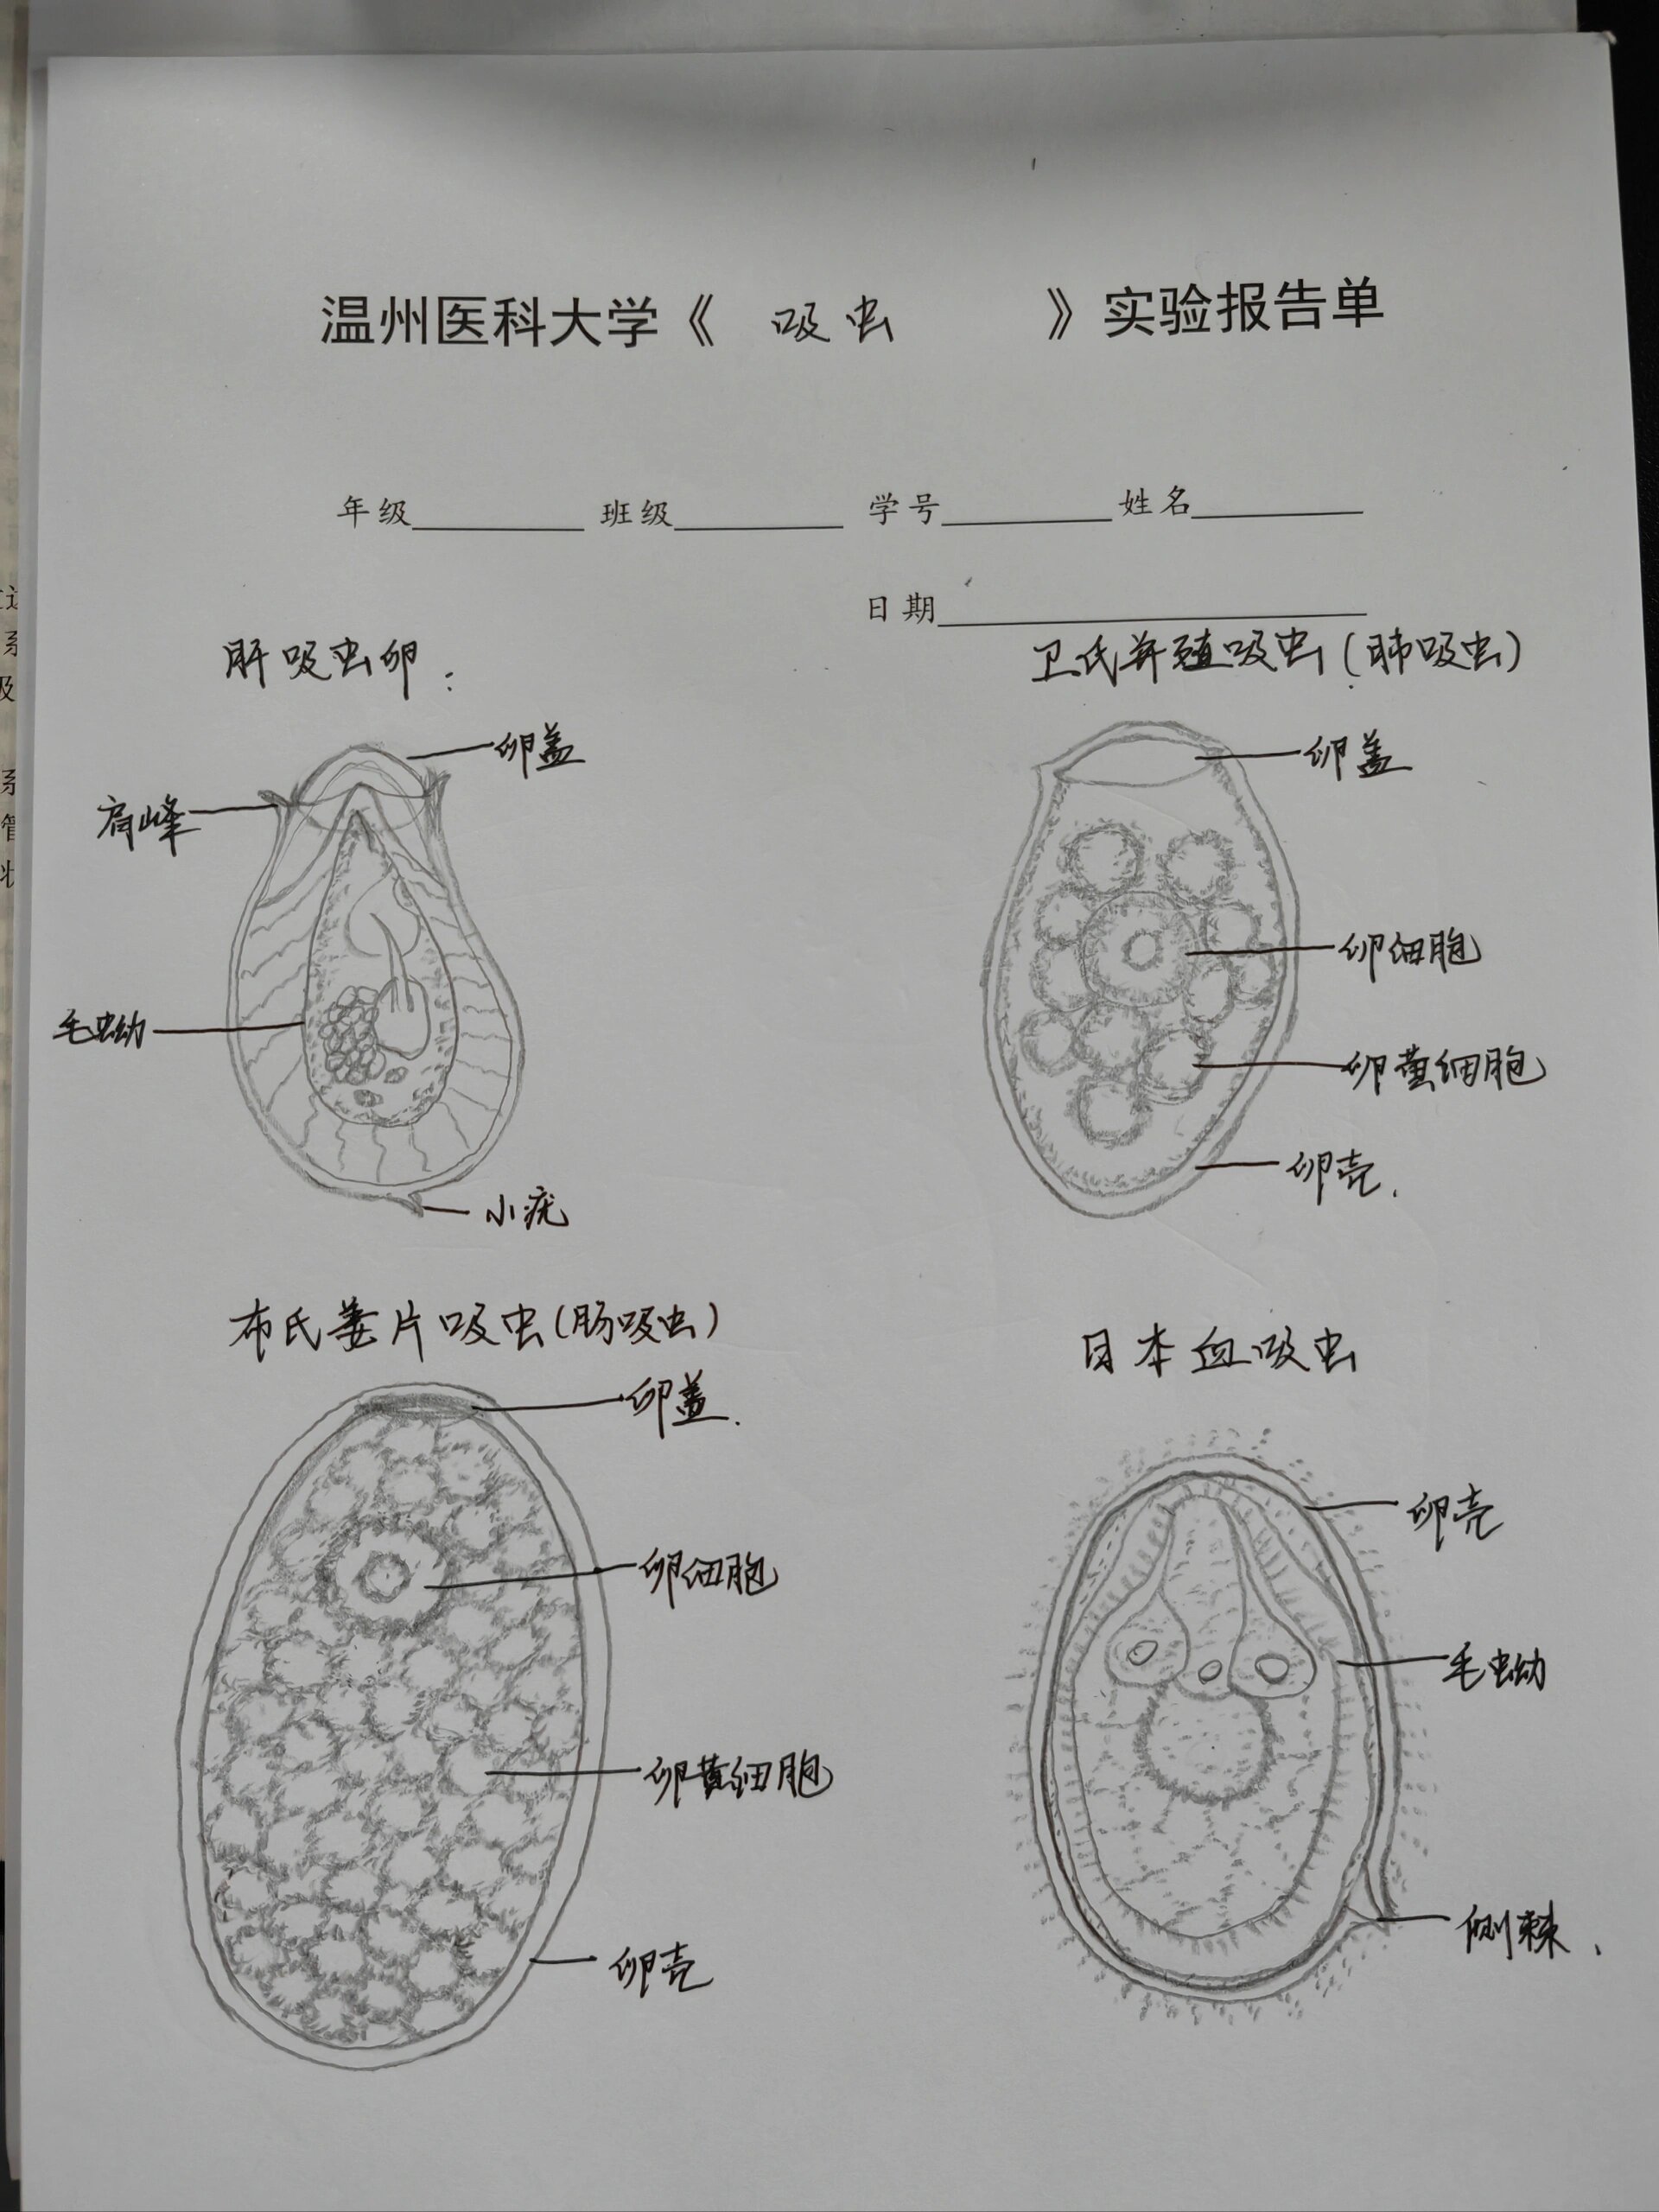 温州医科大学《 吸虫 》实验报告单
年级 班级 学号 姓名
日期
肝吸虫卵:
卵盖
肩峰
毛蚴
小疣
卫氏并殖吸虫(肺吸虫)
卵盖
卵细胞
卵黄细胞
卵壳.
布氏姜片吸虫(肠吸虫)
卵盖.
卵细胞
卵黄细胞
卵壳
日本血吸虫
卵壳
毛蚴
侧棘.